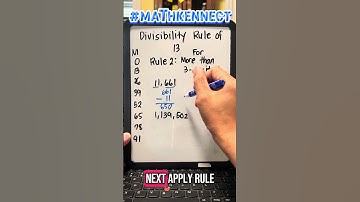 #MATHKENNECT
Divisibility Rule of
13
For
Rule 2: More than
M
O
26
39
52
65
78
91
11,661
661
- 11
650
1,139,502
NEXT APPLY RULE